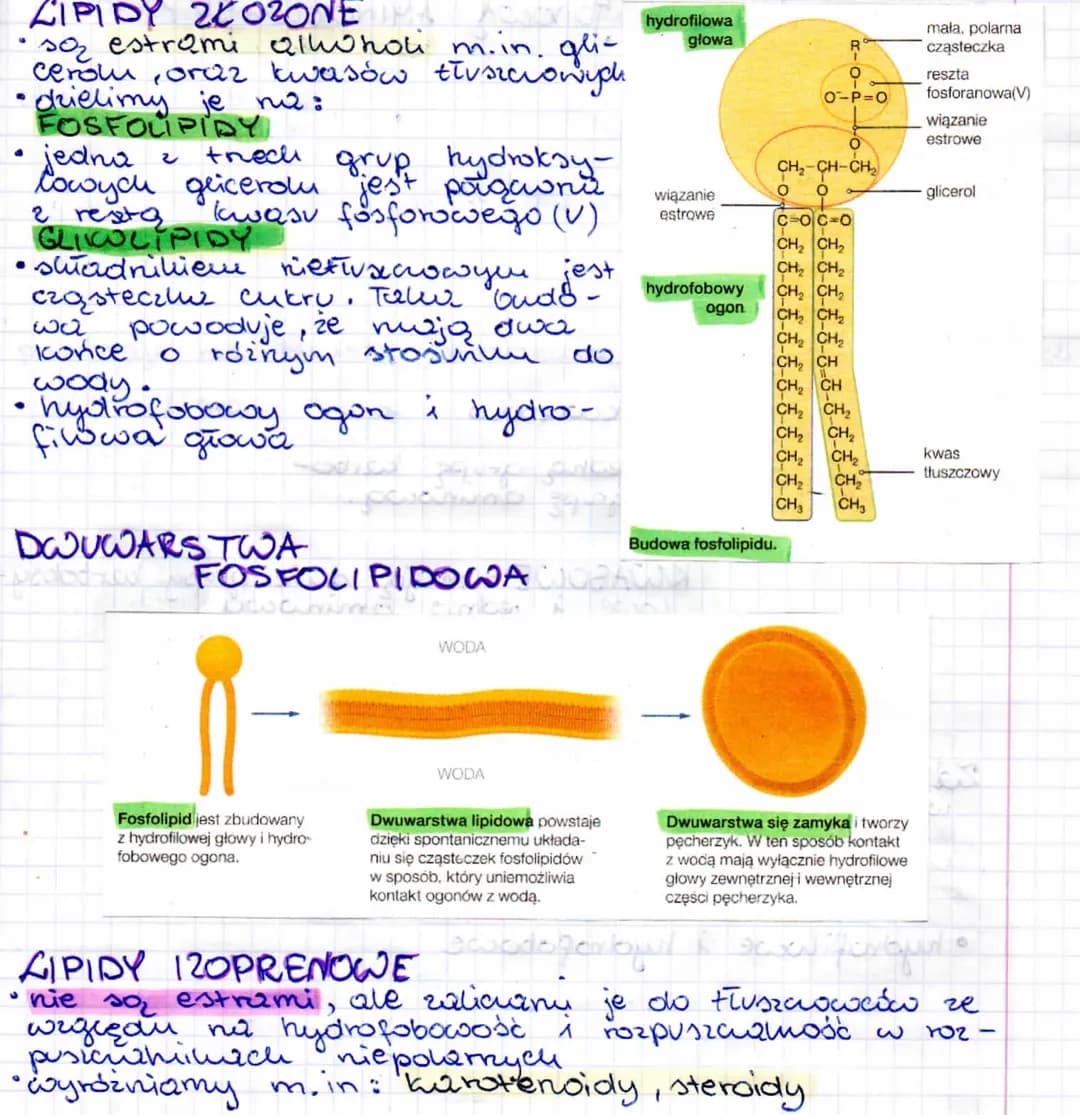 LIPIDY ZŁOŻONE
• są estrami alkoholi m.in. gli-
cerolu, oraz kwasów tłuszczowych
• dzielimy je na:
FOSFOLIPIDY
• jedna z trzech grup hydroksy-
lowych glicerolu jest połączona
z resztą kwasu fosforowego (V)
GLIKOLIPIDY
• składnikiem nietłuszczowym jest
cząsteczka cukru. Taka budo-
wa powoduje, że mają dwa
końce o różnym stosunku do
wody.
• hydrofobowy ogon i hydro-
filowa głowa
hydrofilowa
głowa
mała, polarna
cząsteczka
reszta
fosforanowa(V)
wiązanie
estrowe
glicerol
wiązanie
estrowe
hydrofobowy
ogon
kwas
tłuszczowy
R
O
O⁻-P=O
O
CH₂-CH-CH₂
O O
C=O C=O
CH₂ CH₂
CH₂ CH₂
CH₂ CH₂
CH₂ CH₂
CH₂ CH₂
CH₂ CH
CH₂ CH
CH₂ CH₂
CH₂ CH₂
CH₂ CH₂
CH₂ CH₂
CH₃ CH₃
Budowa fosfolipidu.
DWUWARSTWA
FOSFOLIPIDOWA
WODA
WODA
Fosfolipid jest zbudowany
z hydrofilowej głowy i hydro-
fobowego ogona.
Dwuwarstwa lipidowa powstaje
dzięki spontanicznemu układa-
niu się cząsteczek fosfolipidów
w sposób, który uniemożliwia
kontakt ogonów z wodą.
Dwuwarstwa się zamyka i tworzy
pęcherzyk. W ten sposób kontakt
z wodą mają wyłącznie hydrofilowe
głowy zewnętrznej i wewnętrznej
części pęcherzyka.
LIPIDY IZOPRENOWE
• nie są estrami, ale zaliczamy je do tłuszczowców ze
względu na hydrofobowość i rozpuszczalność w roz-
puszczalnikach niepolarnych
• wyróżniamy m.in: karotenoidy, steroidy